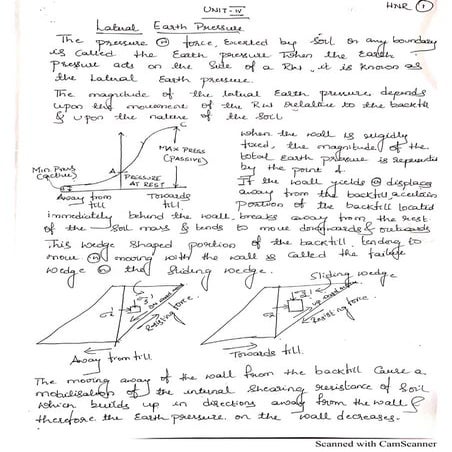 UNIT-IV
HNR 1
Lateral Earth Pressure
The pressure (or) force, Exerted by soil on any boundary
is called the Earth pressure when the Earth
Pressure acts on the Side of a RW, it is known as
the Lateral Earth pressure.
The magnitude of the lateral Earth pressure, depends
upon the movement of the RW relative to the backfill
& upon the nature of the Soil
C
MAX PRESS
(PASSIVE)
Min Press
(active)
A
PRESSURE
AT REST
B
Away from
fill
Towards
fill
when the wall is rigidly
fixed, the magnitude of the
total Earth pressure is represented
by the point A.
If the wall yields (or) displaces
away from the backfill, a certain
portion of the backfill located
immediately behind the wall, breaks away from the rest
of the soil mass & tends to move downwards & outwards
This wedge shaped portion of the backfill tending to
move (or) moving with the wall is called the failure
wedge (or) the Sliding wedge.
Sliding wedge
Resisting force
Resisting force
Away from fill.
Towards fill.
The moving away of the wall from the backfill Cause a
mobilisation of the internal Shearing resistance of Soil
which builds up in directions away from the wall &
therefore the Earth pressure on the wall decreases.
Scanned with CamScanner